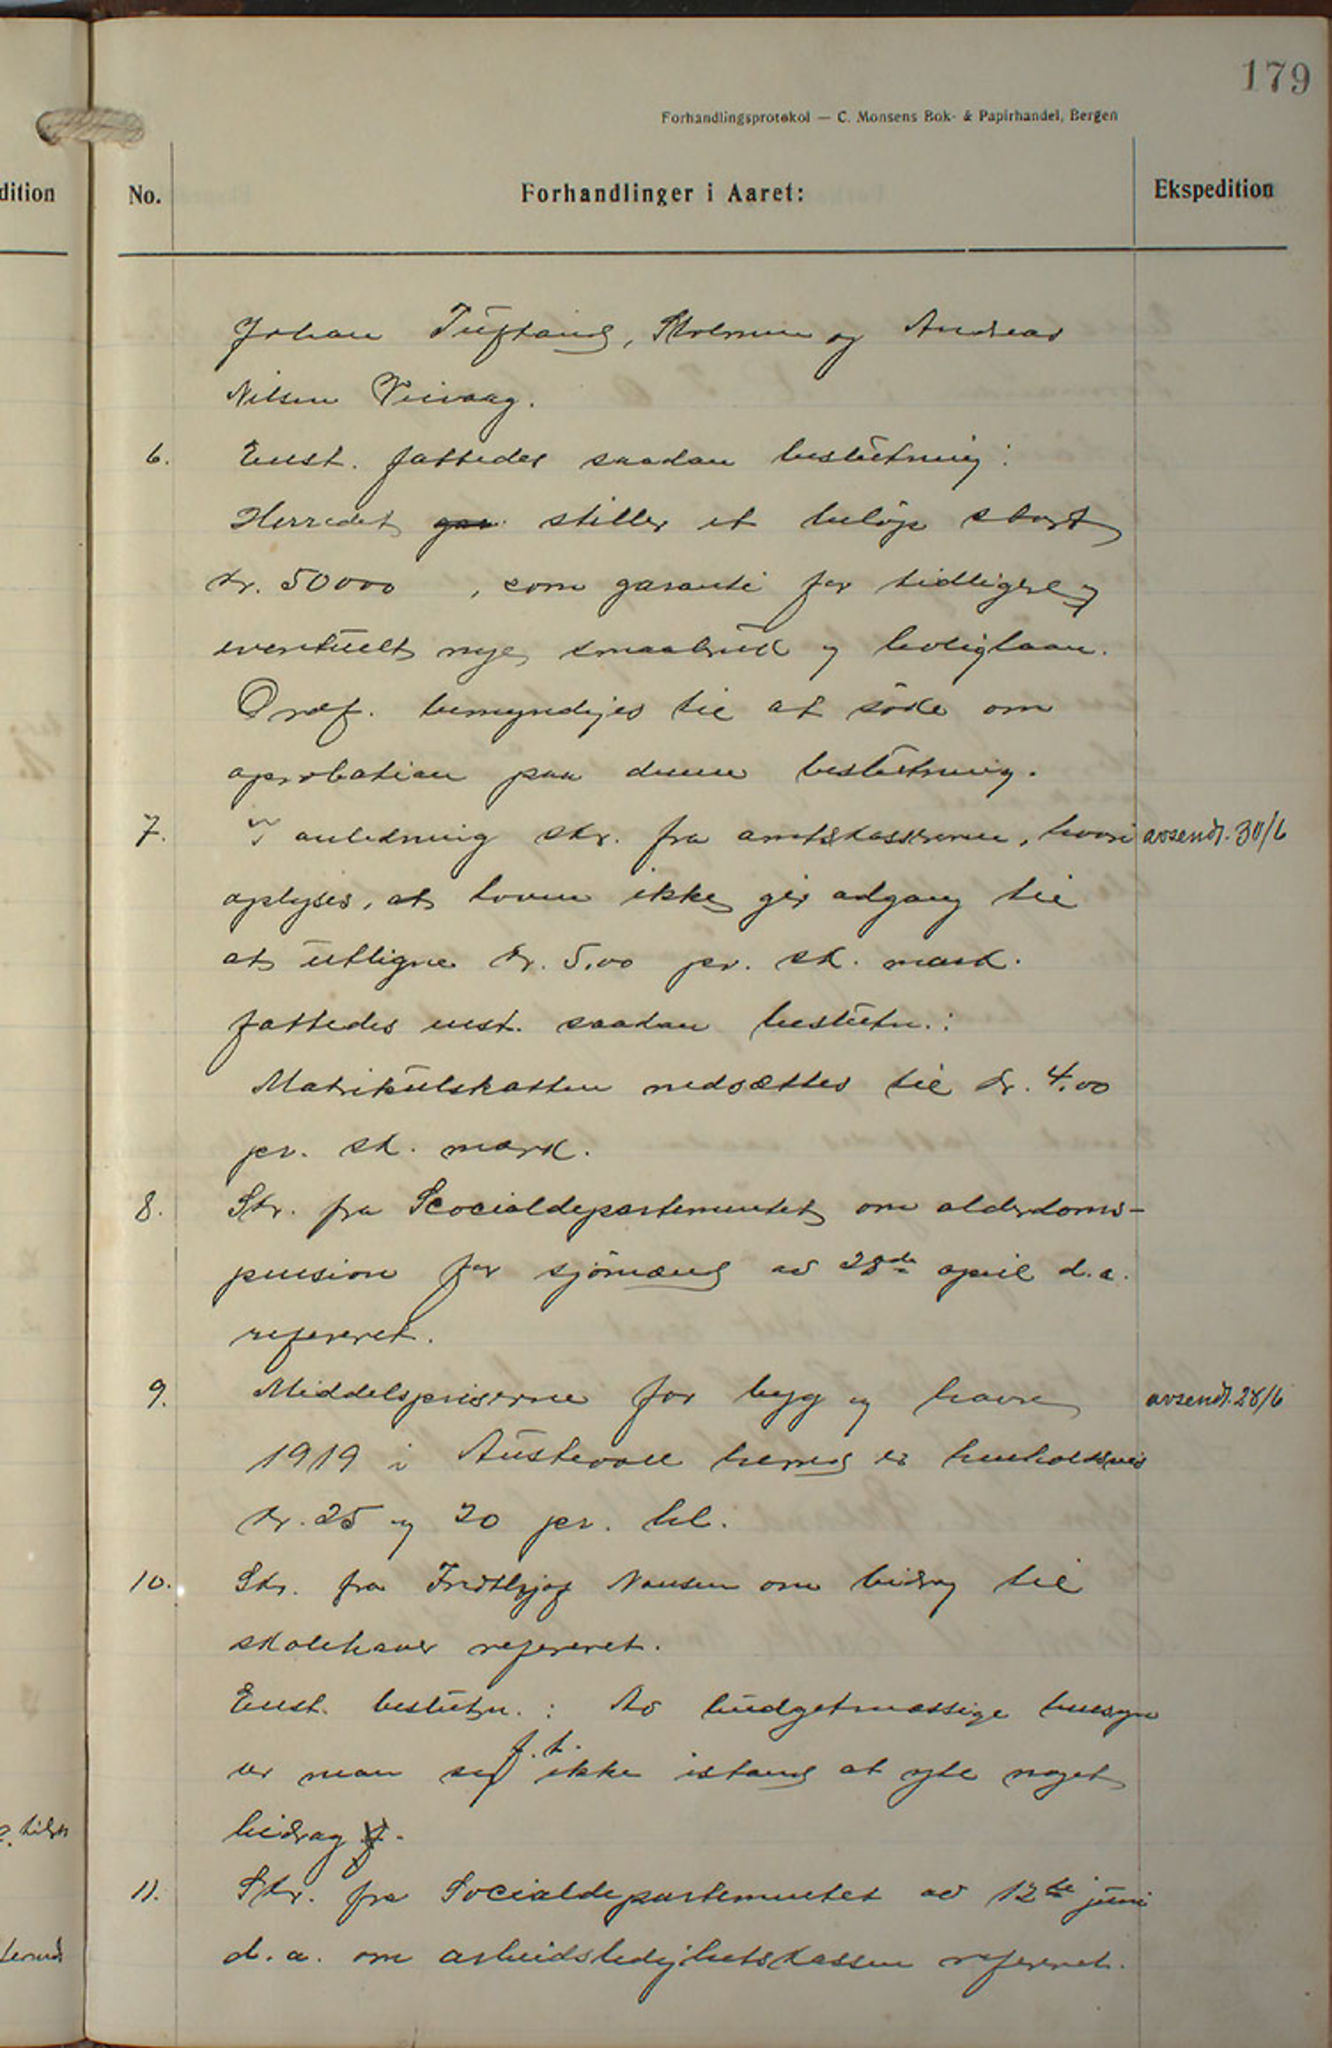 179
Forhandlingsprotokol — C. Monsens Bok- & Papirhandel, Bergen
dition
No.
Forhandlinger i Aaret:
Ekspedition
Johan Tufteland, Stolmen og Andreas
Nilsen Veivaag.
6. Enst. fattedes saadan beslutning:
Herredet gar stiller et beløp stort
kr. 50000 , som garanti for tidligere og
eventuelt nye smaabruk og boliglaan.
Ordf. bemyndiges til at søke om
aprobation paa denne beslutning.
7. I anledning skr. fra amtskassereren, hvori avsendt. 30/6
oplyses, at loven ikke gir adgang til
at utligne kr. 5.00 pr. sk. mark.
fattedes enst. saadan beslutn.:
Matrikulskatten nedsættes til kr. 4.00
pr. sk. mark.
8. Skr. fra Scocialdepartementet om alderdoms-
pension for sjømænd av 28de april d.a.
referert.
9. Middelspriserne for byg og havre avsendt. 28/6
1919 i Austevoll herred er henholdsvis
kr. 25 og 20 pr. hl.
10. Skr. fra Fridthjof Nansen om bidrag til
skolehaver refereret.
Enst. beslutn.: Av budgetmæssige hensyn
er man f.t. ikke istand at yte noget
bidrag.
11. Skr. fra Socialdepartementet av 12te juni
d.a. om arbeidsledighetskassen refereret.